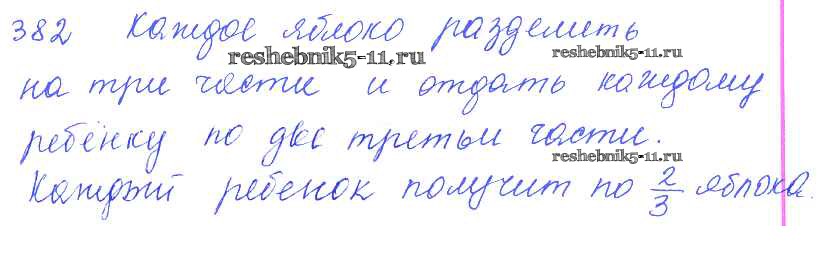 382 Каждое яблоко разделить
reshebnik5-11.ru reshebnik5-11.ru
на три части и отдать каждому
ребёнку по две третьи части.
reshebnik5-11.ru
Каждый ребенок получит по 2/3 яблока.